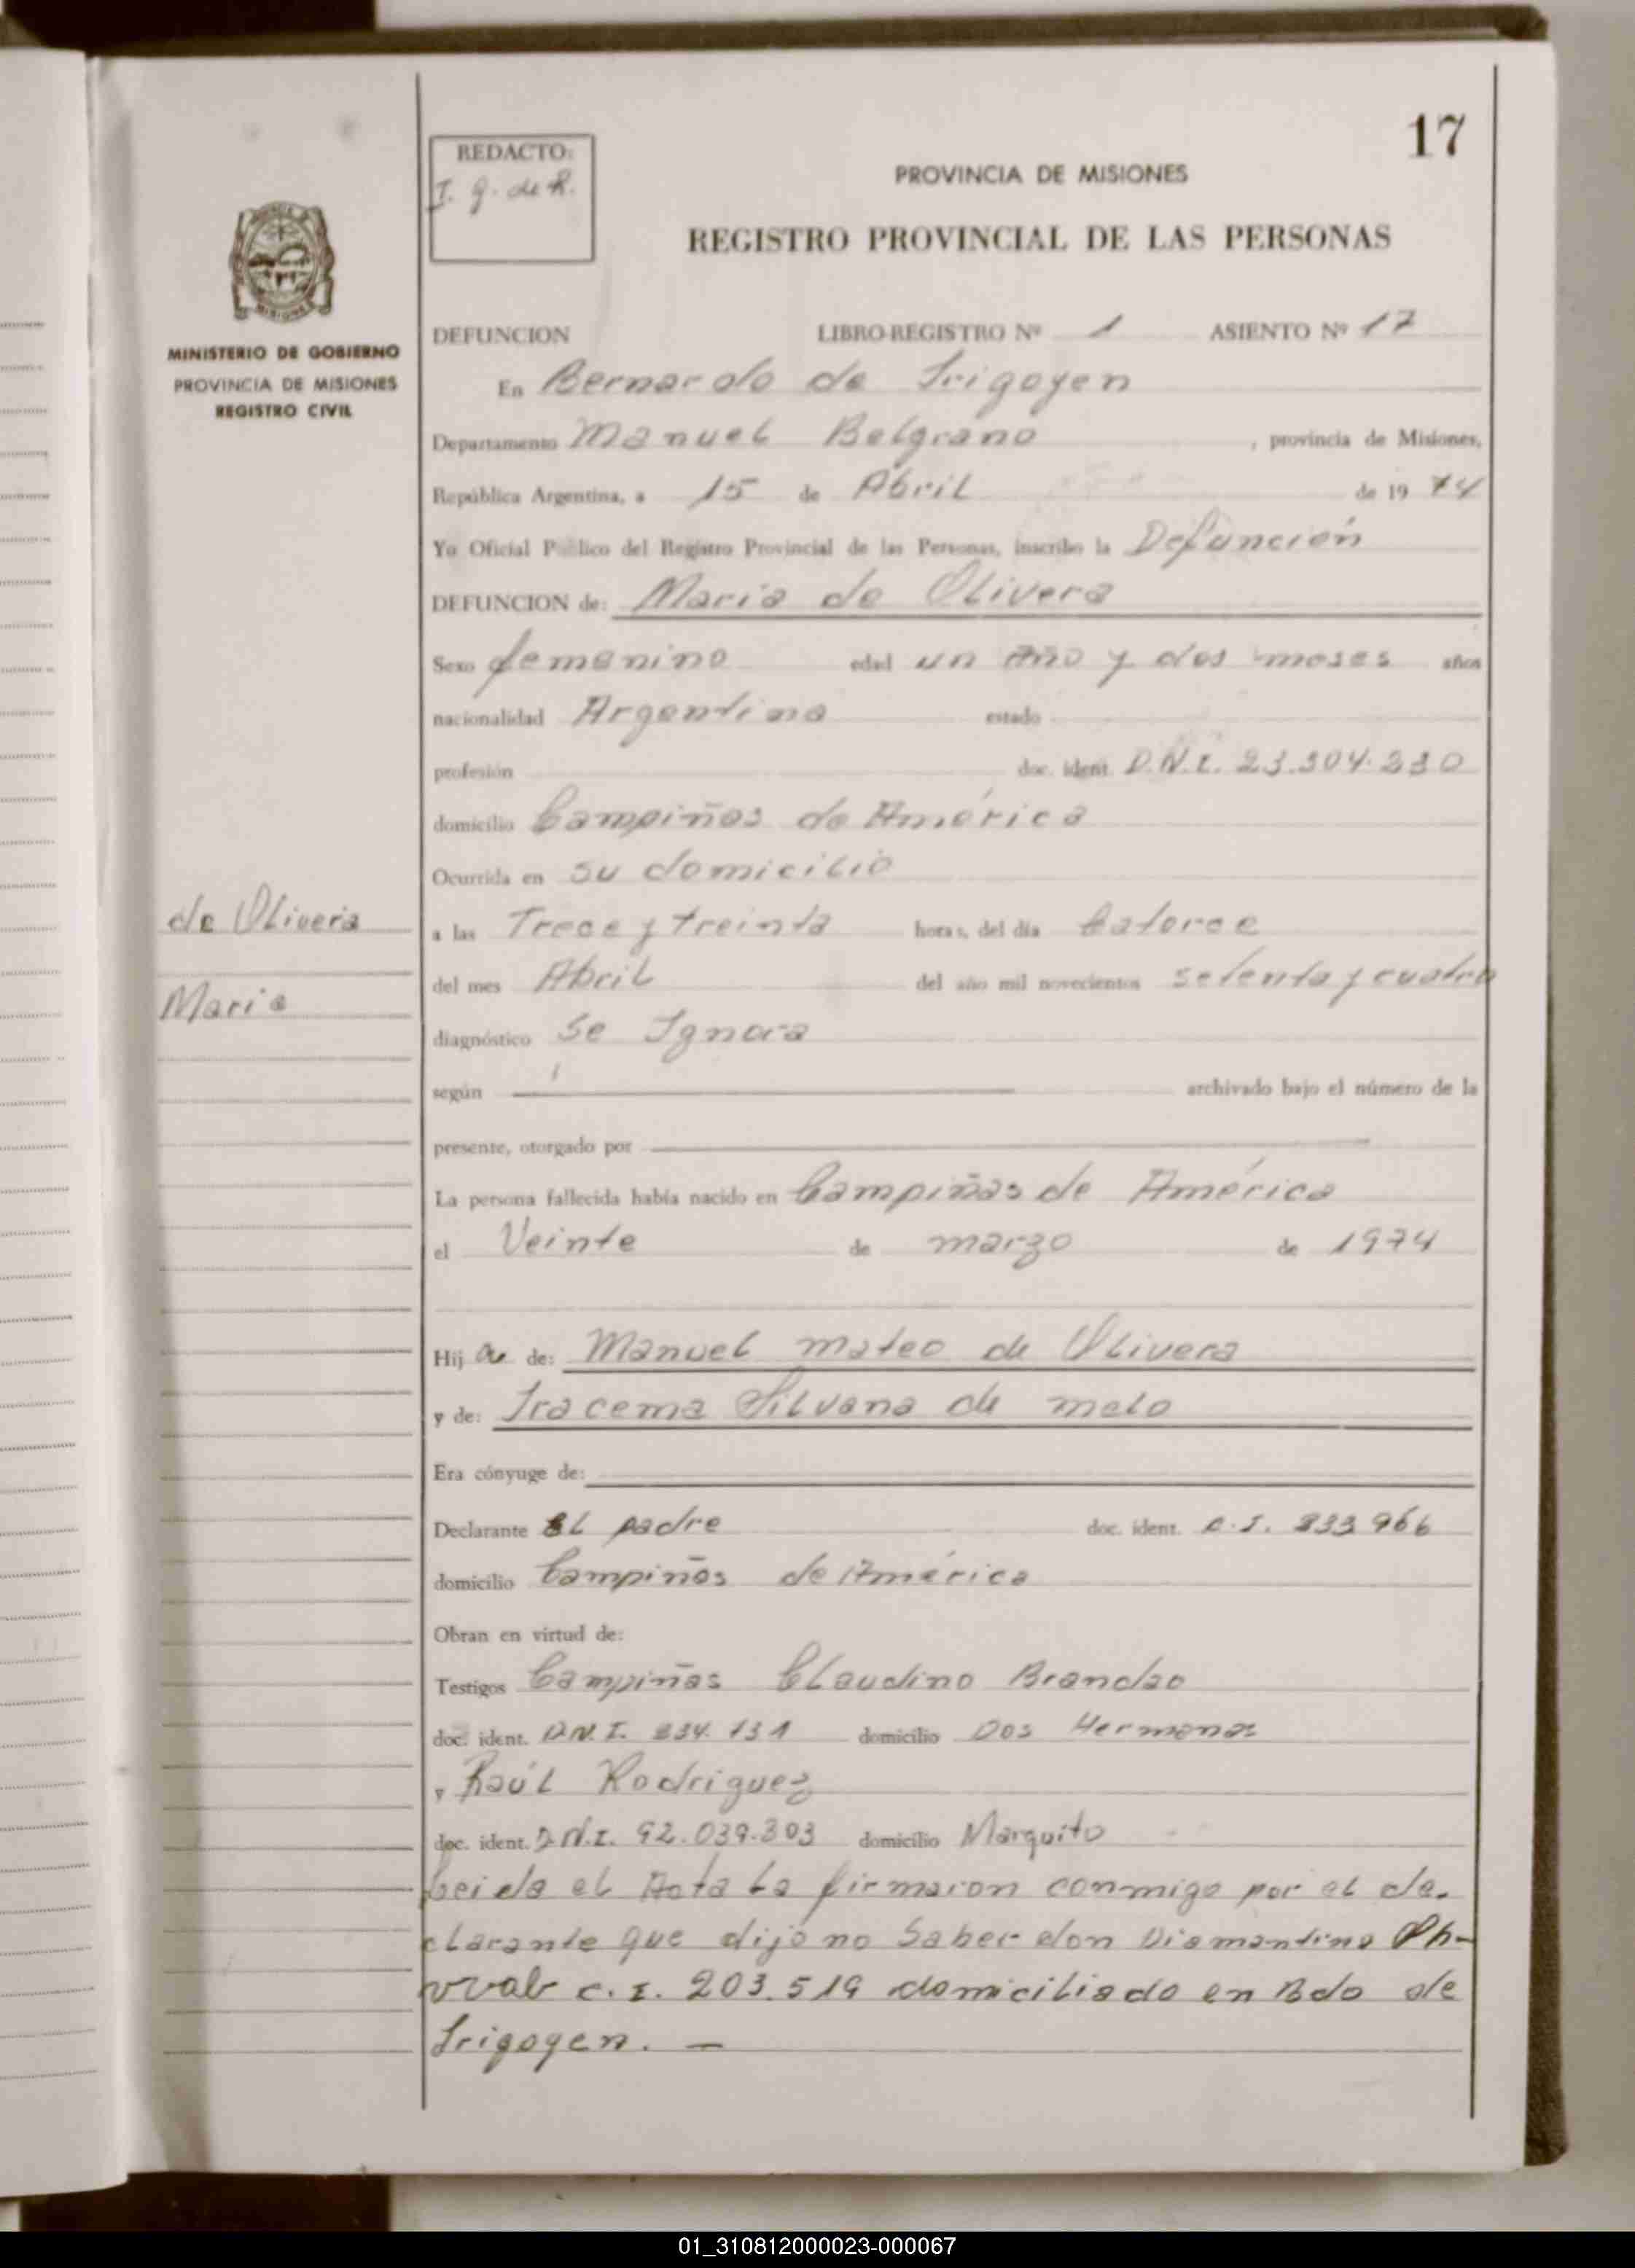 17
REDACTO:
I. g. de R.
PROVINCIA DE MISIONES
REGISTRO PROVINCIAL DE LAS PERSONAS
MINISTERIO DE GOBIERNO
PROVINCIA DE MISIONES
REGISTRO CIVIL
DEFUNCION LIBRO-REGISTRO Nº 1 ASIENTO Nº 17
En Bernardo de Irigoyen
Departamento Manuel Belgrano, provincia de Misiones,
República Argentina, a 15 de Abril de 19 74
Yo Oficial Público del Registro Provincial de las Personas, inscribo la Defunción
DEFUNCION de: Maria de Olivera
Sexo femenino edad un Año y dos meses años
nacionalidad Argentina estado
profesión doc. ident. D.N.I. 23.304.230
domicilio Campiñas de América
Ocurrida en su domicilio
de Oliveria
a las Trece y treinta horas, del día Catorce
del mes Abril del año mil novecientos setenta y cuatro
Maria
diagnóstico Se Ignora
según archivado bajo el número de la
presente, otorgado por
La persona fallecida había nacido en Campiñas de América
el Veinte de marzo de 1974
Hij a de: Manuel mateo de Olivera
y de: Iracema Silvana de melo
Era cónyuge de:
Declarante El padre doc. ident. C.I. 233966
domicilio Campiñas de América
Obran en virtud de:
Testigos Campiñas Claudino Brandao
doc. ident. D.N.I. 234.131 domicilio Dos Hermanas
y Raúl Rodriguez
doc. ident. D.N.I. 92.039.303 domicilio Marquito
Leida el Acta la firmaron conmigo por el de.
clarante que dijo no Saber don Diamantino
C.I. 203.519 domiciliado en Bdo de
Irigoyen. —
01_310812000023-000067